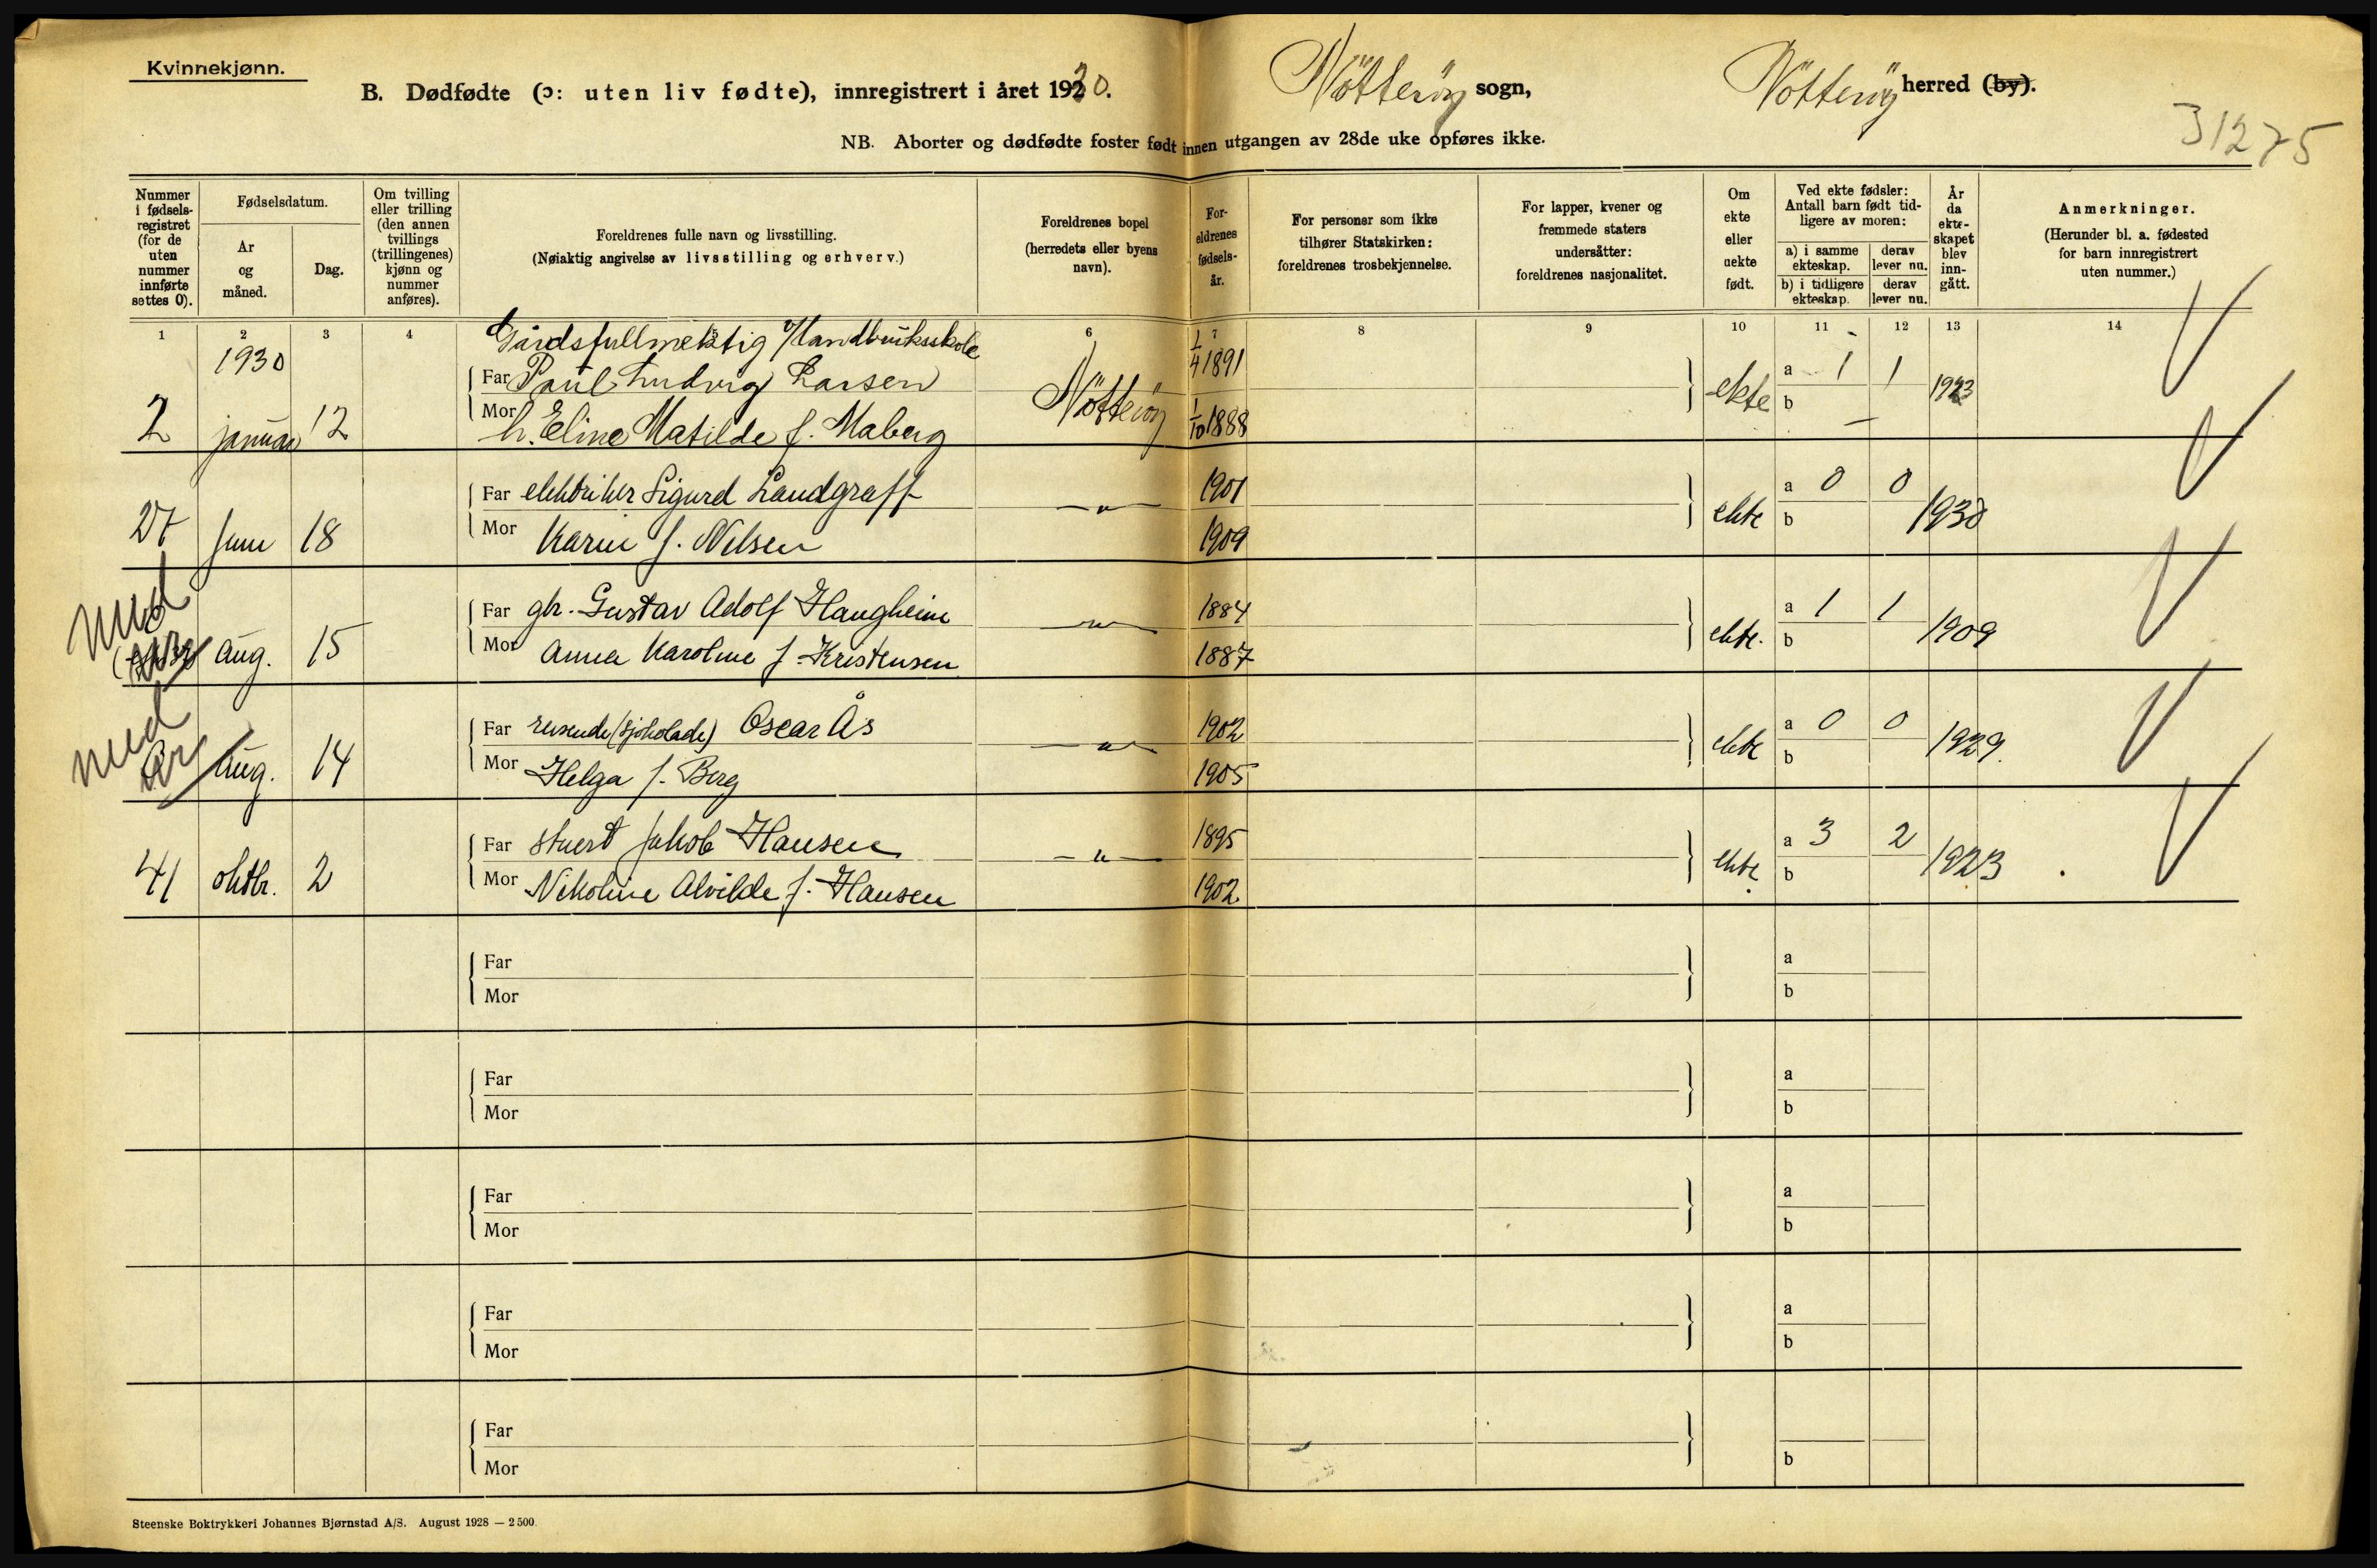 Kvinnekjønn.
B. Dødfødte (ɔ: uten liv fødte), innregistrert i året 1930. Nötteröy sogn, Nötteröy herred (by).
31275
NB. Aborter og dødfødte foster født innen utgangen av 28de uke opføres ikke.
Nummer i fødsels-registret (for de uten nummer innførte settes 0).
Fødselsdatum.
År og måned.
Dag.
Om tvilling eller trilling (den annen tvillings (trillingenes) kjønn og nummer anføres).
Foreldrenes fulle navn og livsstilling.
(Nøiaktig angivelse av livsstilling og erhverv.)
Foreldrenes bopel (herredets eller byens navn).
For-eldrenes fødsels-år.
For personer som ikke tilhører Statskirken: foreldrenes trosbekjennelse.
For lapper, kvener og fremmede staters undersåtter: foreldrenes nasjonalitet.
Om ekte eller uekte født.
Ved ekte fødsler: Antall barn født tid-ligere av moren:
a) i samme ekteskap. derav lever nu.
b) i tidligere ekteskap. derav lever nu.
År da ekte-skapet blev inn-gått.
Anmerkninger.
(Herunder bl. a. fødested for barn innregistrert uten nummer.)
1 2 3 4 6 7 8 9 10 11 12 13 14
1930 Gårdsfullmektig v/landbruksskole
Far Paul Ludvig Larsen 1/4 1891 a 1 1
2 januar 12 Mor h. Eline Matilde f. Maberg Nötteröy 1/10 1888 ekte b — 1923
Far elektriker Sigurd Landgraff 1901 a 0 0
27 Juni 18 Mor Karin f. Nilsen — " — 1909 ekte b 1930
med
Far gbr. Gustav Adolf Haugheim 1884 a 1 1
aug. 15 Mor Anna Karoline f. Kristensen — " — 1887 ekte. b 1909
med
Far reisende (sjokolade) Oscar Ås 1902 a 0 0
aug. 14 Mor Helga f. Berg — " — 1905 ekte b 1929.
Far stuert Jakob Hansen 1895 a 3 2
41 oktbr. 2 Mor Nikoline Alvilde f. Hansen — " — 1902 ekte b 1923
Far a
Mor b
Far a
Mor b
Far a
Mor b
Far a
Mor b
Far
Mor b
Steenske Boktrykkeri Johannes Bjørnstad A/S. August 1928 — 2500.